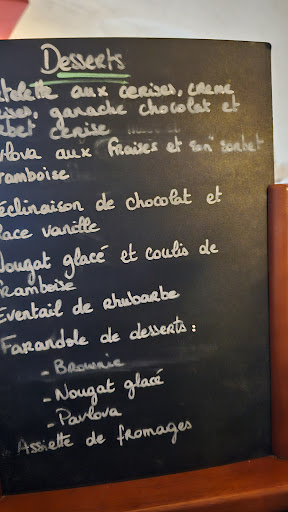 Desserts
telette aux cerises, crème
ises, ganache chocolat et
rbet cerise
vlova aux fraises et son sorbet
ramboise
éclinaison de chocolat et
lace vanille
Nougat glacé et coulis de
framboise
Eventail de rhubarbe
Farandole de desserts :
- Brownie
- Nougat glacé
- Pavlova
Assiette de fromages